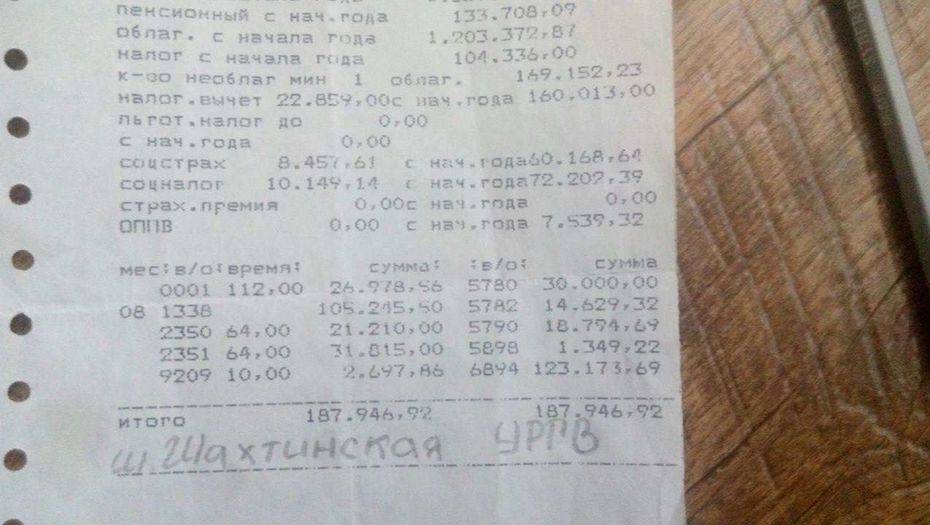 пенсионный с нач.года 133.708,09
облаг. с начала года 1.203.372,87
налог с начала года 104.336,00
к-во необлаг мин 1 облаг. 169.152,23
налог.вычет 22.859,00с нач.года 160.013,00
льгот.налог до 0,00
с нач.года 0,00
соцстрах 8.457,61 с нач.года60.168,64
соцналог 10.149,14 с нач.года72.202,39
страх.премия 0,00с нач.года 0,00
ОППВ 0,00 с нач.года 7.539,32
мес:в/о:время: сумма: :в/о: сумма
0001 112,00 26.978,56 5780 30.000,00
08 1338 105.245,50 5782 14.629,32
2350 64,00 21.210,00 5790 18.794,69
2351 64,00 31.815,00 5898 1.349,22
9209 10,00 2.697,86 6894 123.173,69
итого 187.946,92 187.946,92
ш.Шахтинская УРПВ